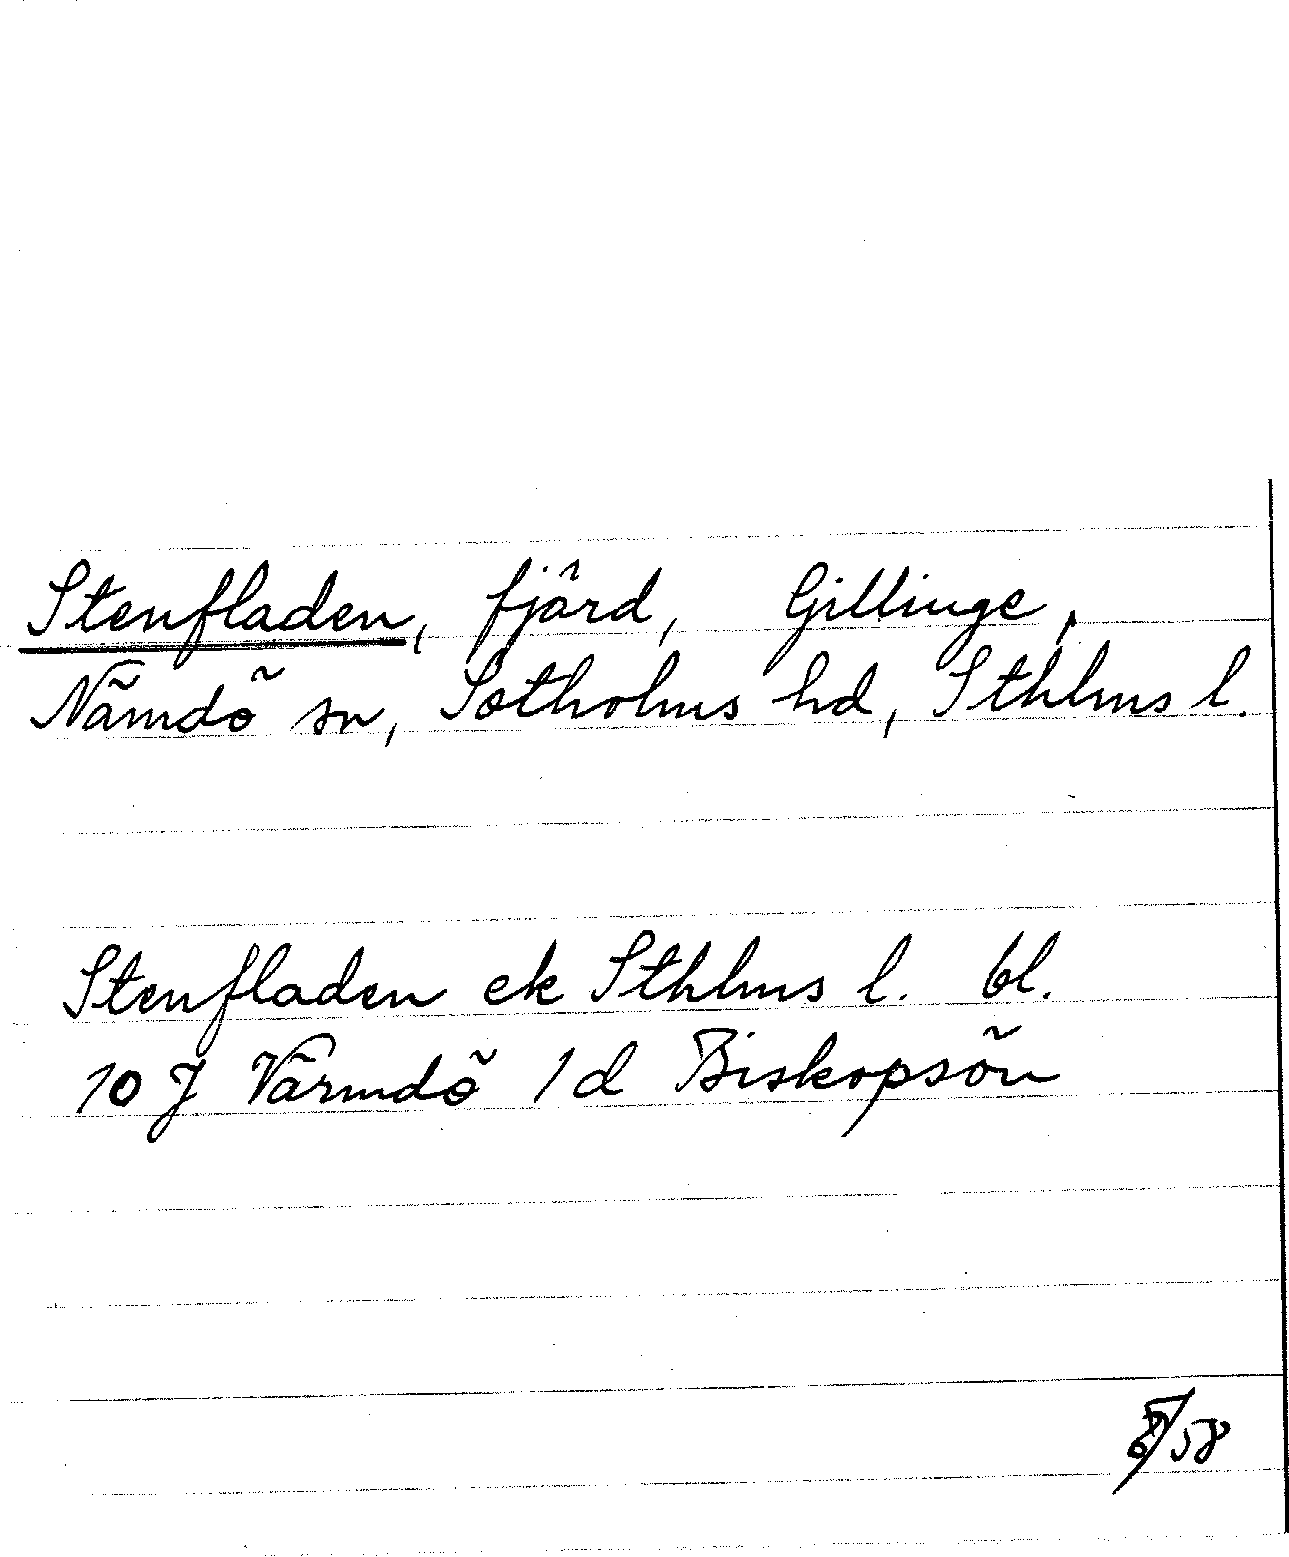 Stenfladen, fjärd, Gillinge,
Nämdö sn, Sotholms hd, Sthlms l.
Stenfladen ek Sthlms l. bl.
10 J Värmdö 1 d Biskopsön
/58